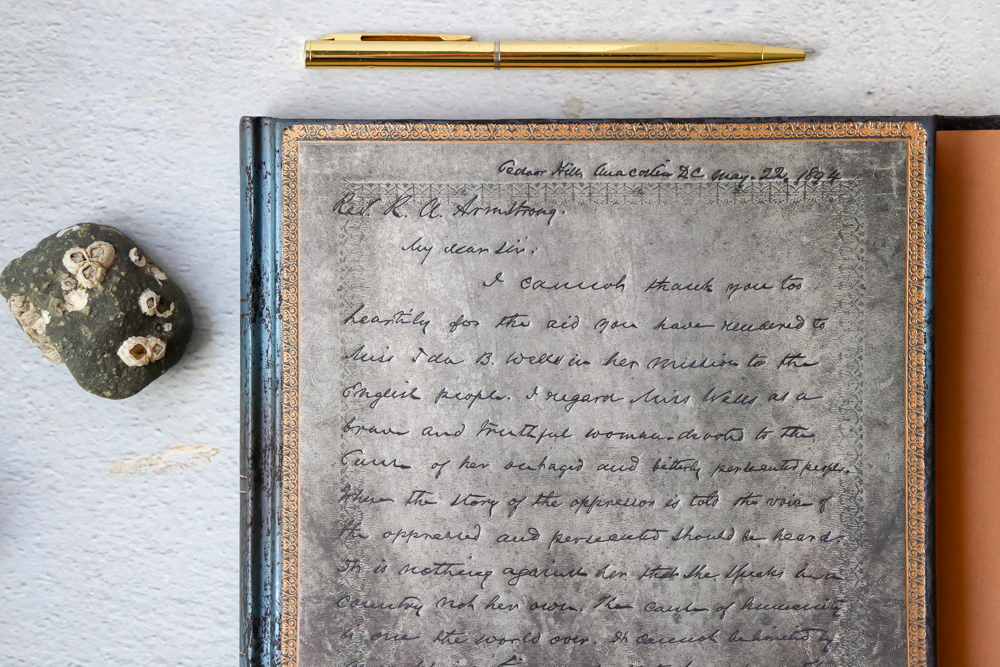 Cedar Hill, Anacostia DC May. 22, 1894
Rev. R. A. Armstrong.
My dear Sir:
I cannot thank you too
heartily for the aid you have rendered to
Miss Ida B. Wells in her mission to the
English people. I regard Miss Wells as a
brave and truthful woman devoted to the
Cause of her outraged and bitterly persecuted people.
When the story of the oppressor is told the voice of
the oppressed and persecuted should be heard.
It is nothing against her that she speaks in a
country not her own. The cause of humanity
is one the world over. It cannot be limited by